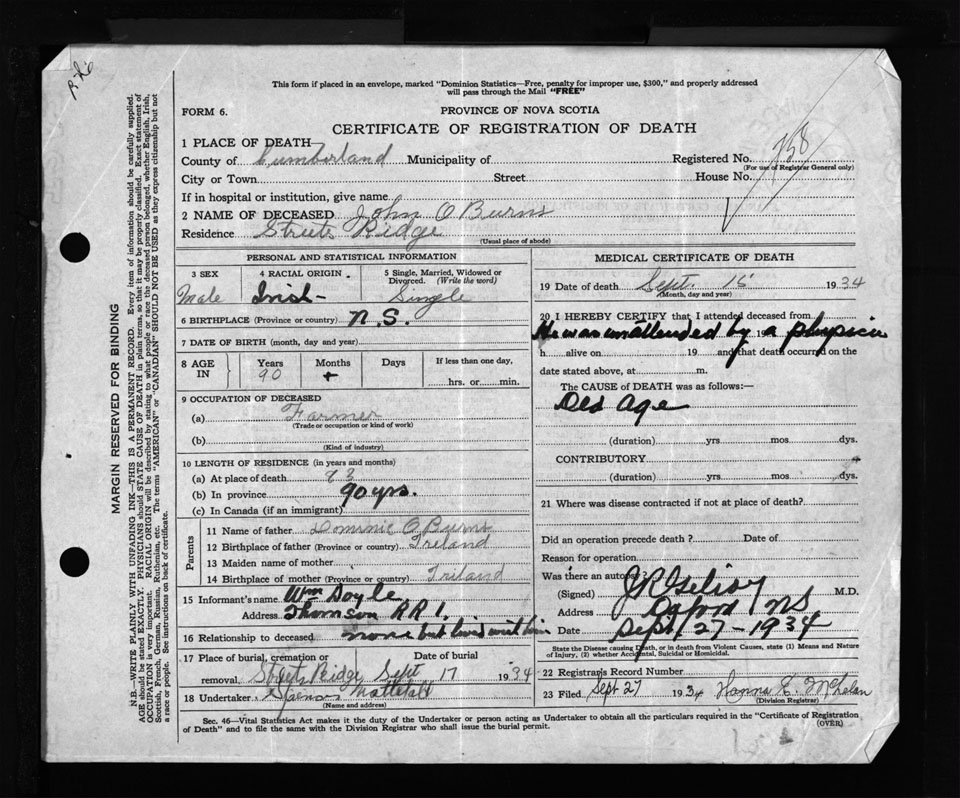 This form if placed in an envelope, marked "Dominion Statistics—Free, penalty for improper use, $300," and properly addressed
will pass through the Mail "FREE"
FORM 6.
PROVINCE OF NOVA SCOTIA
CERTIFICATE OF REGISTRATION OF DEATH
1 PLACE OF DEATH
County of Cumberland Municipality of Registered No. 758
(For use of Registrar General only)
City or Town Street House No.
If in hospital or institution, give name
2 NAME OF DECEASED John O Burns
Residence Streets Ridge
(Usual place of abode)
PERSONAL AND STATISTICAL INFORMATION
3 SEX 4 RACIAL ORIGIN. 5 Single, Married, Widowed or
Divorced. (Write the word)
Male Irish Single
6 BIRTHPLACE (Province or country) N.S.
7 DATE OF BIRTH (month, day and year)
8 AGE IN Years Months Days If less than one day,
90 + hrs. or min.
9 OCCUPATION OF DECEASED
(a) Farmer
(Trade or occupation or kind of work)
(b)
(Kind of industry)
10 LENGTH OF RESIDENCE (in years and months)
(a) At place of death
(b) In province 90 yrs.
(c) In Canada (if an immigrant)
Parents
11 Name of father Dominic O Burns
12 Birthplace of father (Province or country) Ireland
13 Maiden name of mother
14 Birthplace of mother (Province or country) Irland
15 Informant's name Wm Doyle
Address Thomson RR 1,
16 Relationship to deceased none but lived with him
17 Place of burial, cremation or Date of burial
removal, Streets Ridge Sept 17 1934
18 Undertaker
(Name and address)
MEDICAL CERTIFICATE OF DEATH
19 Date of death Sept. 15 1934
(Month, day and year)
20 I HEREBY CERTIFY that I attended deceased from
He was unattended by a physicin
h alive on 19 and that death occurred on the
date stated above, at m.
The CAUSE of DEATH was as follows:—
Old age
(duration) yrs mos dys.
CONTRIBUTORY
(duration) yrs. mos. dys.
21 Where was disease contracted if not at place of death?
Did an operation precede death? Date of
Reason for operation
Was there an autopsy?
(Signed) M.D.
Address NS,
Date Sept 27-1934
State the Disease causing Death, or in death from Violent Causes, state (1) Means and Nature
of Injury, (2) whether Accidental, Suicidal or Homicidal.
22 Registrar's Record Number
23 Filed Sept 27 1934 Hanna E.
(Division Registrar)
Sec. 46—Vital Statistics Act makes it the duty of the Undertaker or person acting as Undertaker to obtain all the particulars required in the "Certificate of Registration
of Death" and to file the same with the Division Registrar who shall issue the burial permit.
(OVER)
MARGIN RESERVED FOR BINDING
N.B.—WRITE PLAINLY WITH UNFADING INK—THIS IS A PERMANENT RECORD. Every item of information should be carefully supplied.
AGE should be stated EXACTLY. PHYSICIANS should STATE CAUSE OF DEATH in plain terms, so that it may be properly classified. Exact statement of
OCCUPATION is very important. RACIAL ORIGIN will be described by stating to what people or race the deceased person belonged, whether English, Irish,
Scottish, French, German, Russian, Ruthenian, etc. The terms "AMERICAN" or "CANADIAN" SHOULD NOT BE USED as they express citizenship but not
a race or people. See instructions on back of certificate.